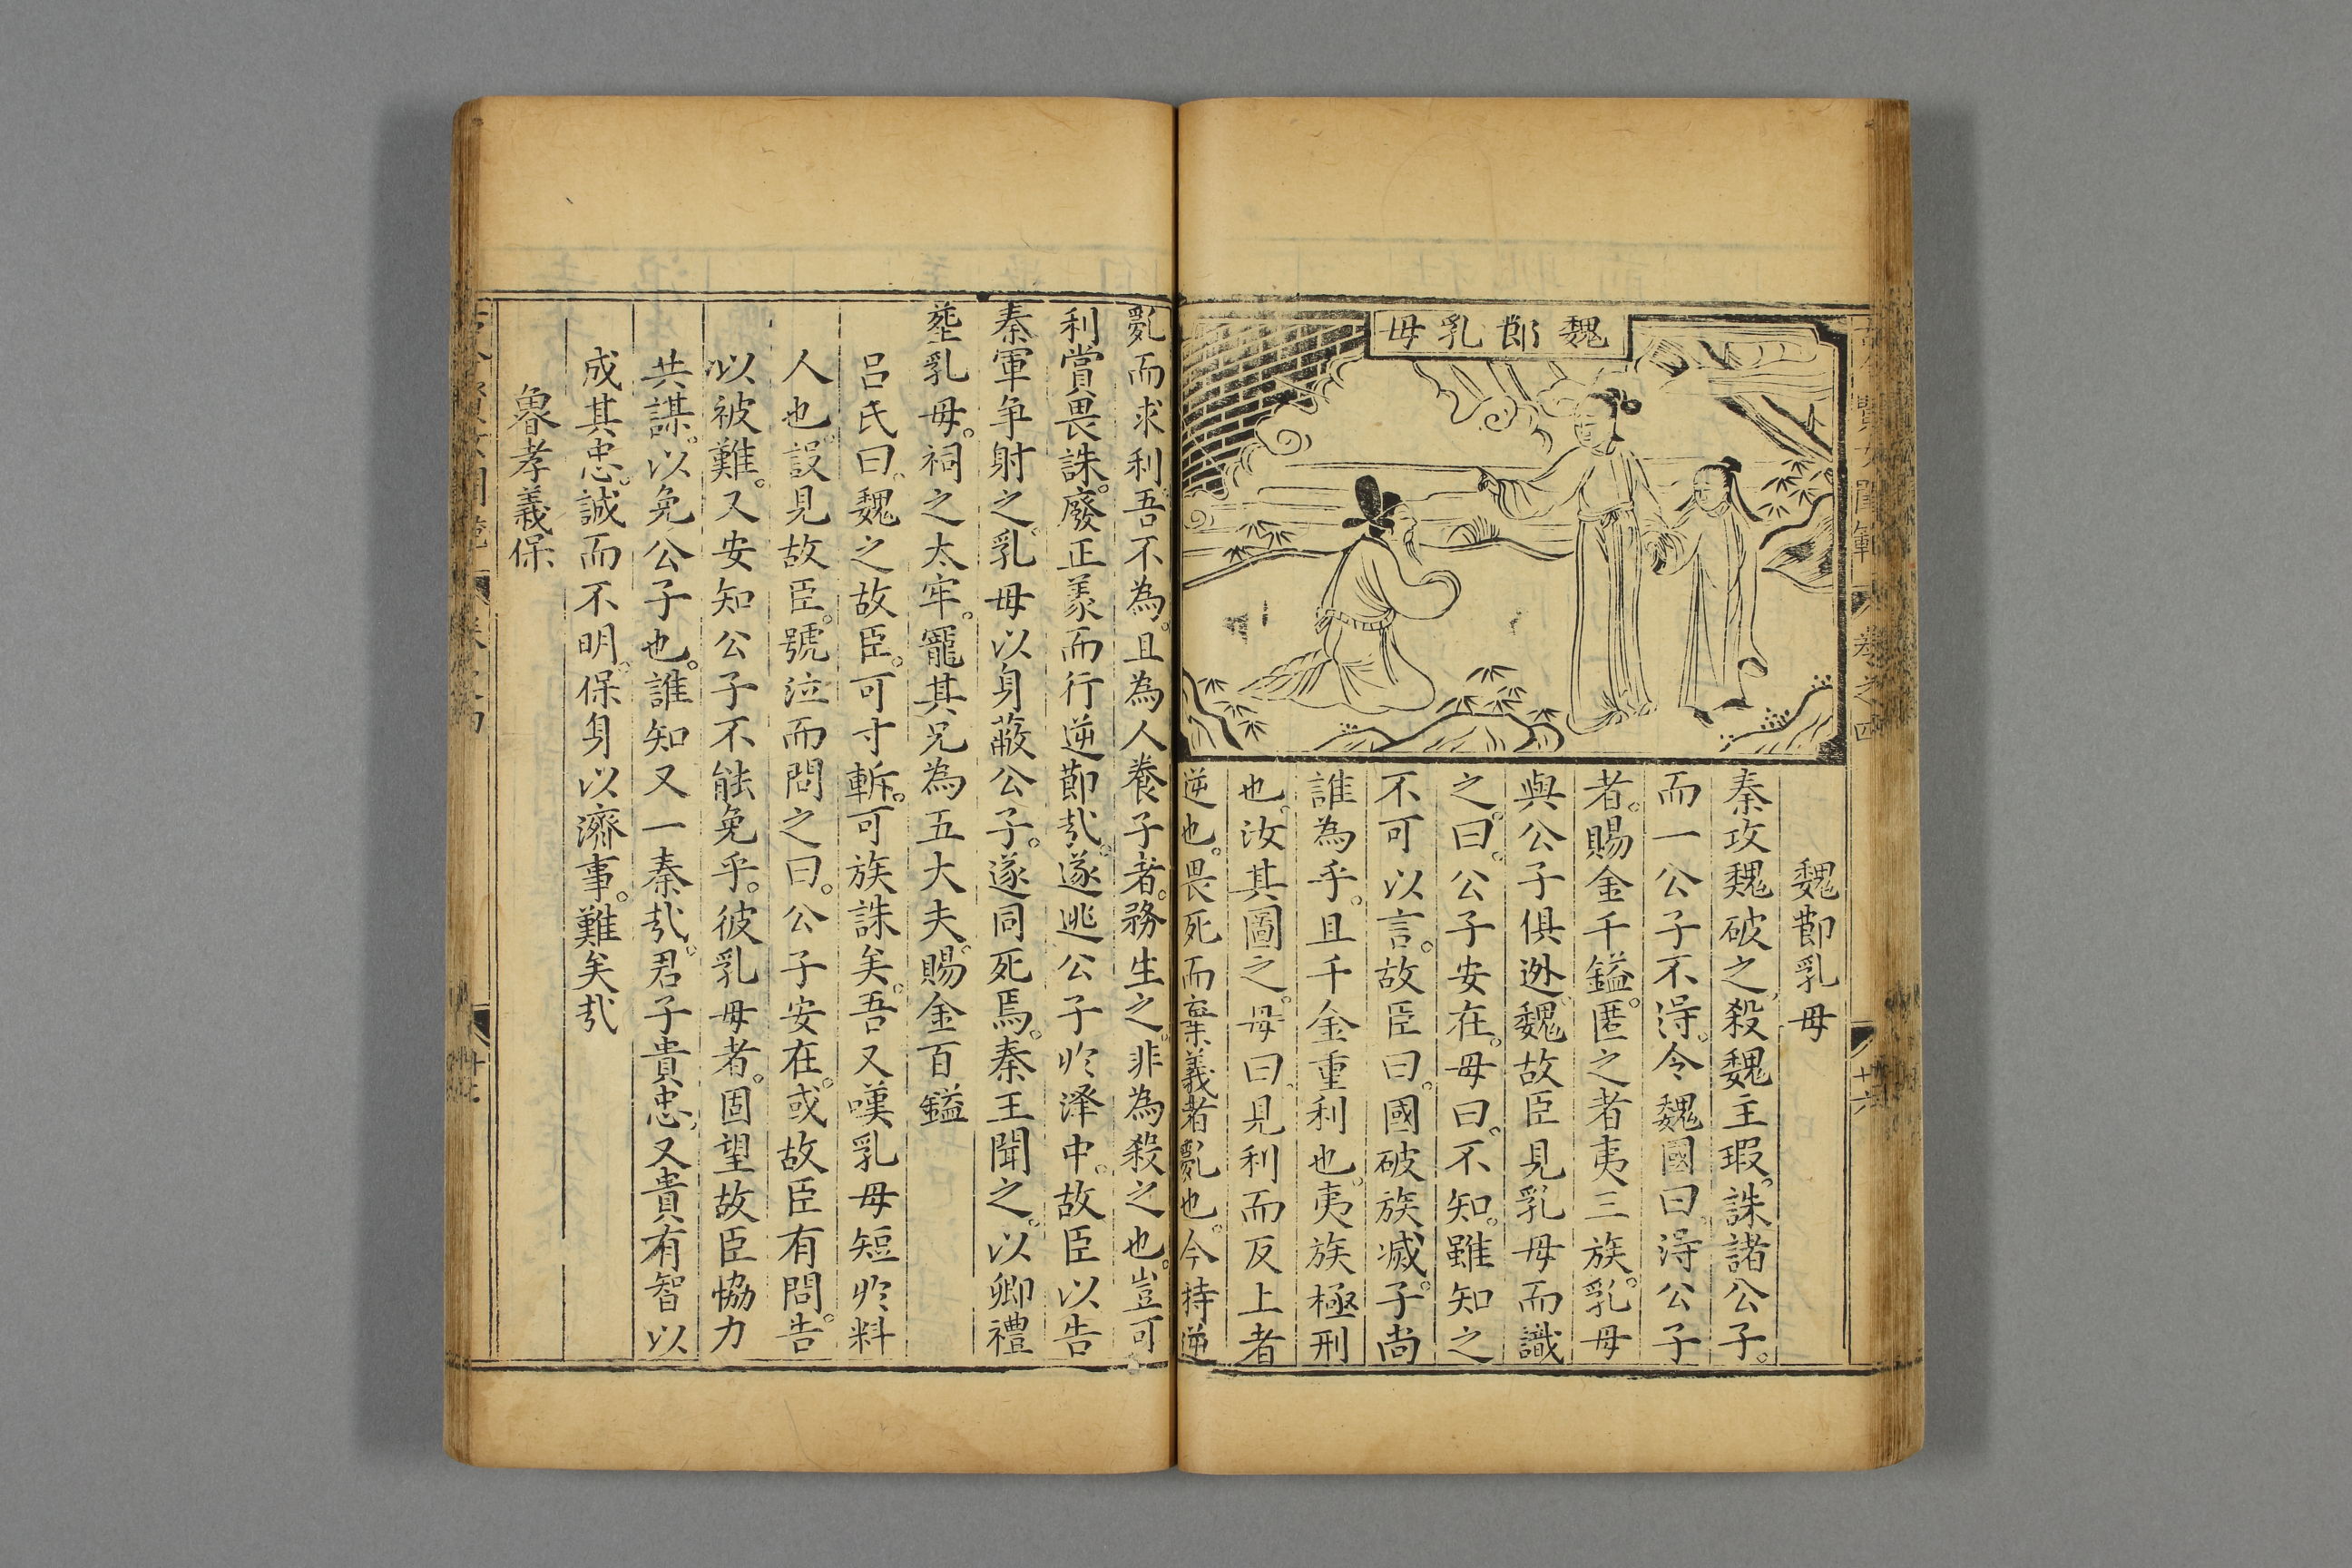 魏郎乳母
魏節乳母
秦攻魏破之殺魏主瑕。誅諸公子。
而一公子不淂。令魏國曰。淂公子
者。賜金千鎰。匿之者夷三族。乳母
與公子俱逃。魏故臣見乳母而識
之曰。公子安在。母曰。不知。雖知之
不可以言。故臣曰。國破族滅。子尚
誰為乎。且千金重利也。夷族極刑
也。汝其圖之。母曰。見利而反上者
逆也。畏死而棄義者亂也。今持逆
亂而求利。吾不為。且為人養子者。務生之。非為殺之也。豈可
利賞畏誅。廢正義而行逆節㦲。遂逃公子於澤中。故臣以告
秦軍争射之。乳母以身蔽公子。遂同死焉。秦王聞之。以卿禮
塟乳母。祠之太牢。寵其兄為五大夫。賜金百鎰
呂氏曰。魏之故臣。可寸斬。可族誅矣。吾又嘆乳母短於料
人也。設見故臣。號泣而問之曰。公子安在。或故臣有問。告
以被難。又安知公子不能免乎。彼乳母者。固望故臣協力
共謀。以免公子也。誰知又一秦㦲。君子貴忠。又貴有智以
成其忠。誠而不明。保身以濟事。難矣㦲
魯孝義保
卷之四
十六